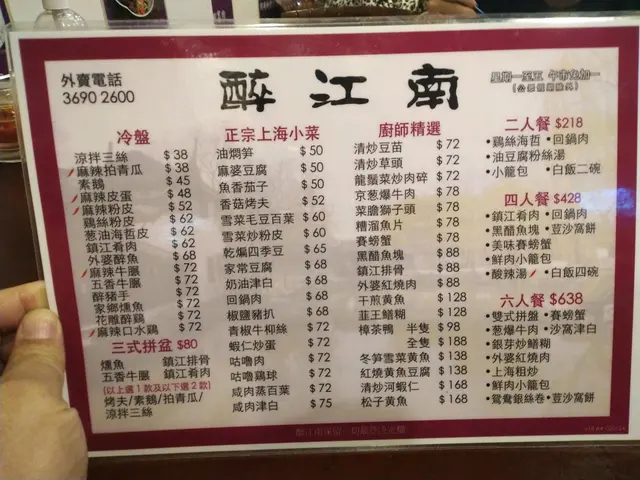 外賣電話
3690 2600
醉江南
星期一至五 午市免加一
(公眾假期除外)
冷盤
涼拌三絲 $38
麻辣拍青瓜 $38
素鵝 $45
麻辣皮蛋 $48
麻辣粉皮 $52
鷄絲粉皮 $62
葱油海哲皮 $62
鎮江肴肉 $62
外婆醉魚 $68
麻辣牛腒 $72
五香牛腒 $72
醉豬手 $72
家鄉燻魚 $72
花雕醉鷄 $72
麻辣口水鷄 $72
三式拼盆 $80
燻魚 鎮江排骨
五香牛腒 鎮江肴肉
(以上選1款及以下選2款)
烤夫/素鵝/拍青瓜/
涼拌三絲
正宗上海小菜
油燜笋 $50
麻婆豆腐 $50
魚香茄子 $50
香菇烤夫 $52
雪菜毛豆百葉 $60
雪菜炒粉皮 $60
乾煸四季豆 $65
家常豆腐 $68
奶油津白 $68
回鍋肉 $68
椒鹽豬扒 $68
青椒牛柳絲 $72
蝦仁炒蛋 $72
咕嚕肉 $72
咕嚕鷄球 $72
咸肉蒸百葉 $72
咸肉津白 $75
廚師精選
清炒豆苗 $72
清炒草頭 $72
龍鬚菜炒肉碎 $72
京葱爆牛肉 $78
菜膽獅子頭 $78
糟溜魚片 $78
賽螃蟹 $78
黑醋魚塊 $88
鎮江排骨 $88
外婆紅燒肉 $88
干煎黄魚 $128
韮王鱔糊 $128
樟茶鴨 半隻 $98
全隻 $188
冬笋雪菜黄魚 $138
紅燒黄魚豆腐 $138
清炒河蝦仁 $168
松子黄魚 $168
二人餐 $218
•鷄絲海哲 •回鍋肉
•油豆腐粉絲湯
•小籠包 •白飯二碗
四人餐 $428
•鎮江肴肉 •回鍋肉
•黑醋魚塊 •荳沙窩餅
•美味賽螃蟹
•鮮肉小籠包
•酸辣湯 •白飯四碗
六人餐 $638
•雙式拼盤 •賽螃蟹
•葱爆牛肉 •沙窩津白
•銀芽炒鱔糊
•外婆紅燒肉
•上海粗炒
•鮮肉小籠包
•鴛鴦銀絲卷 •荳沙窩餅